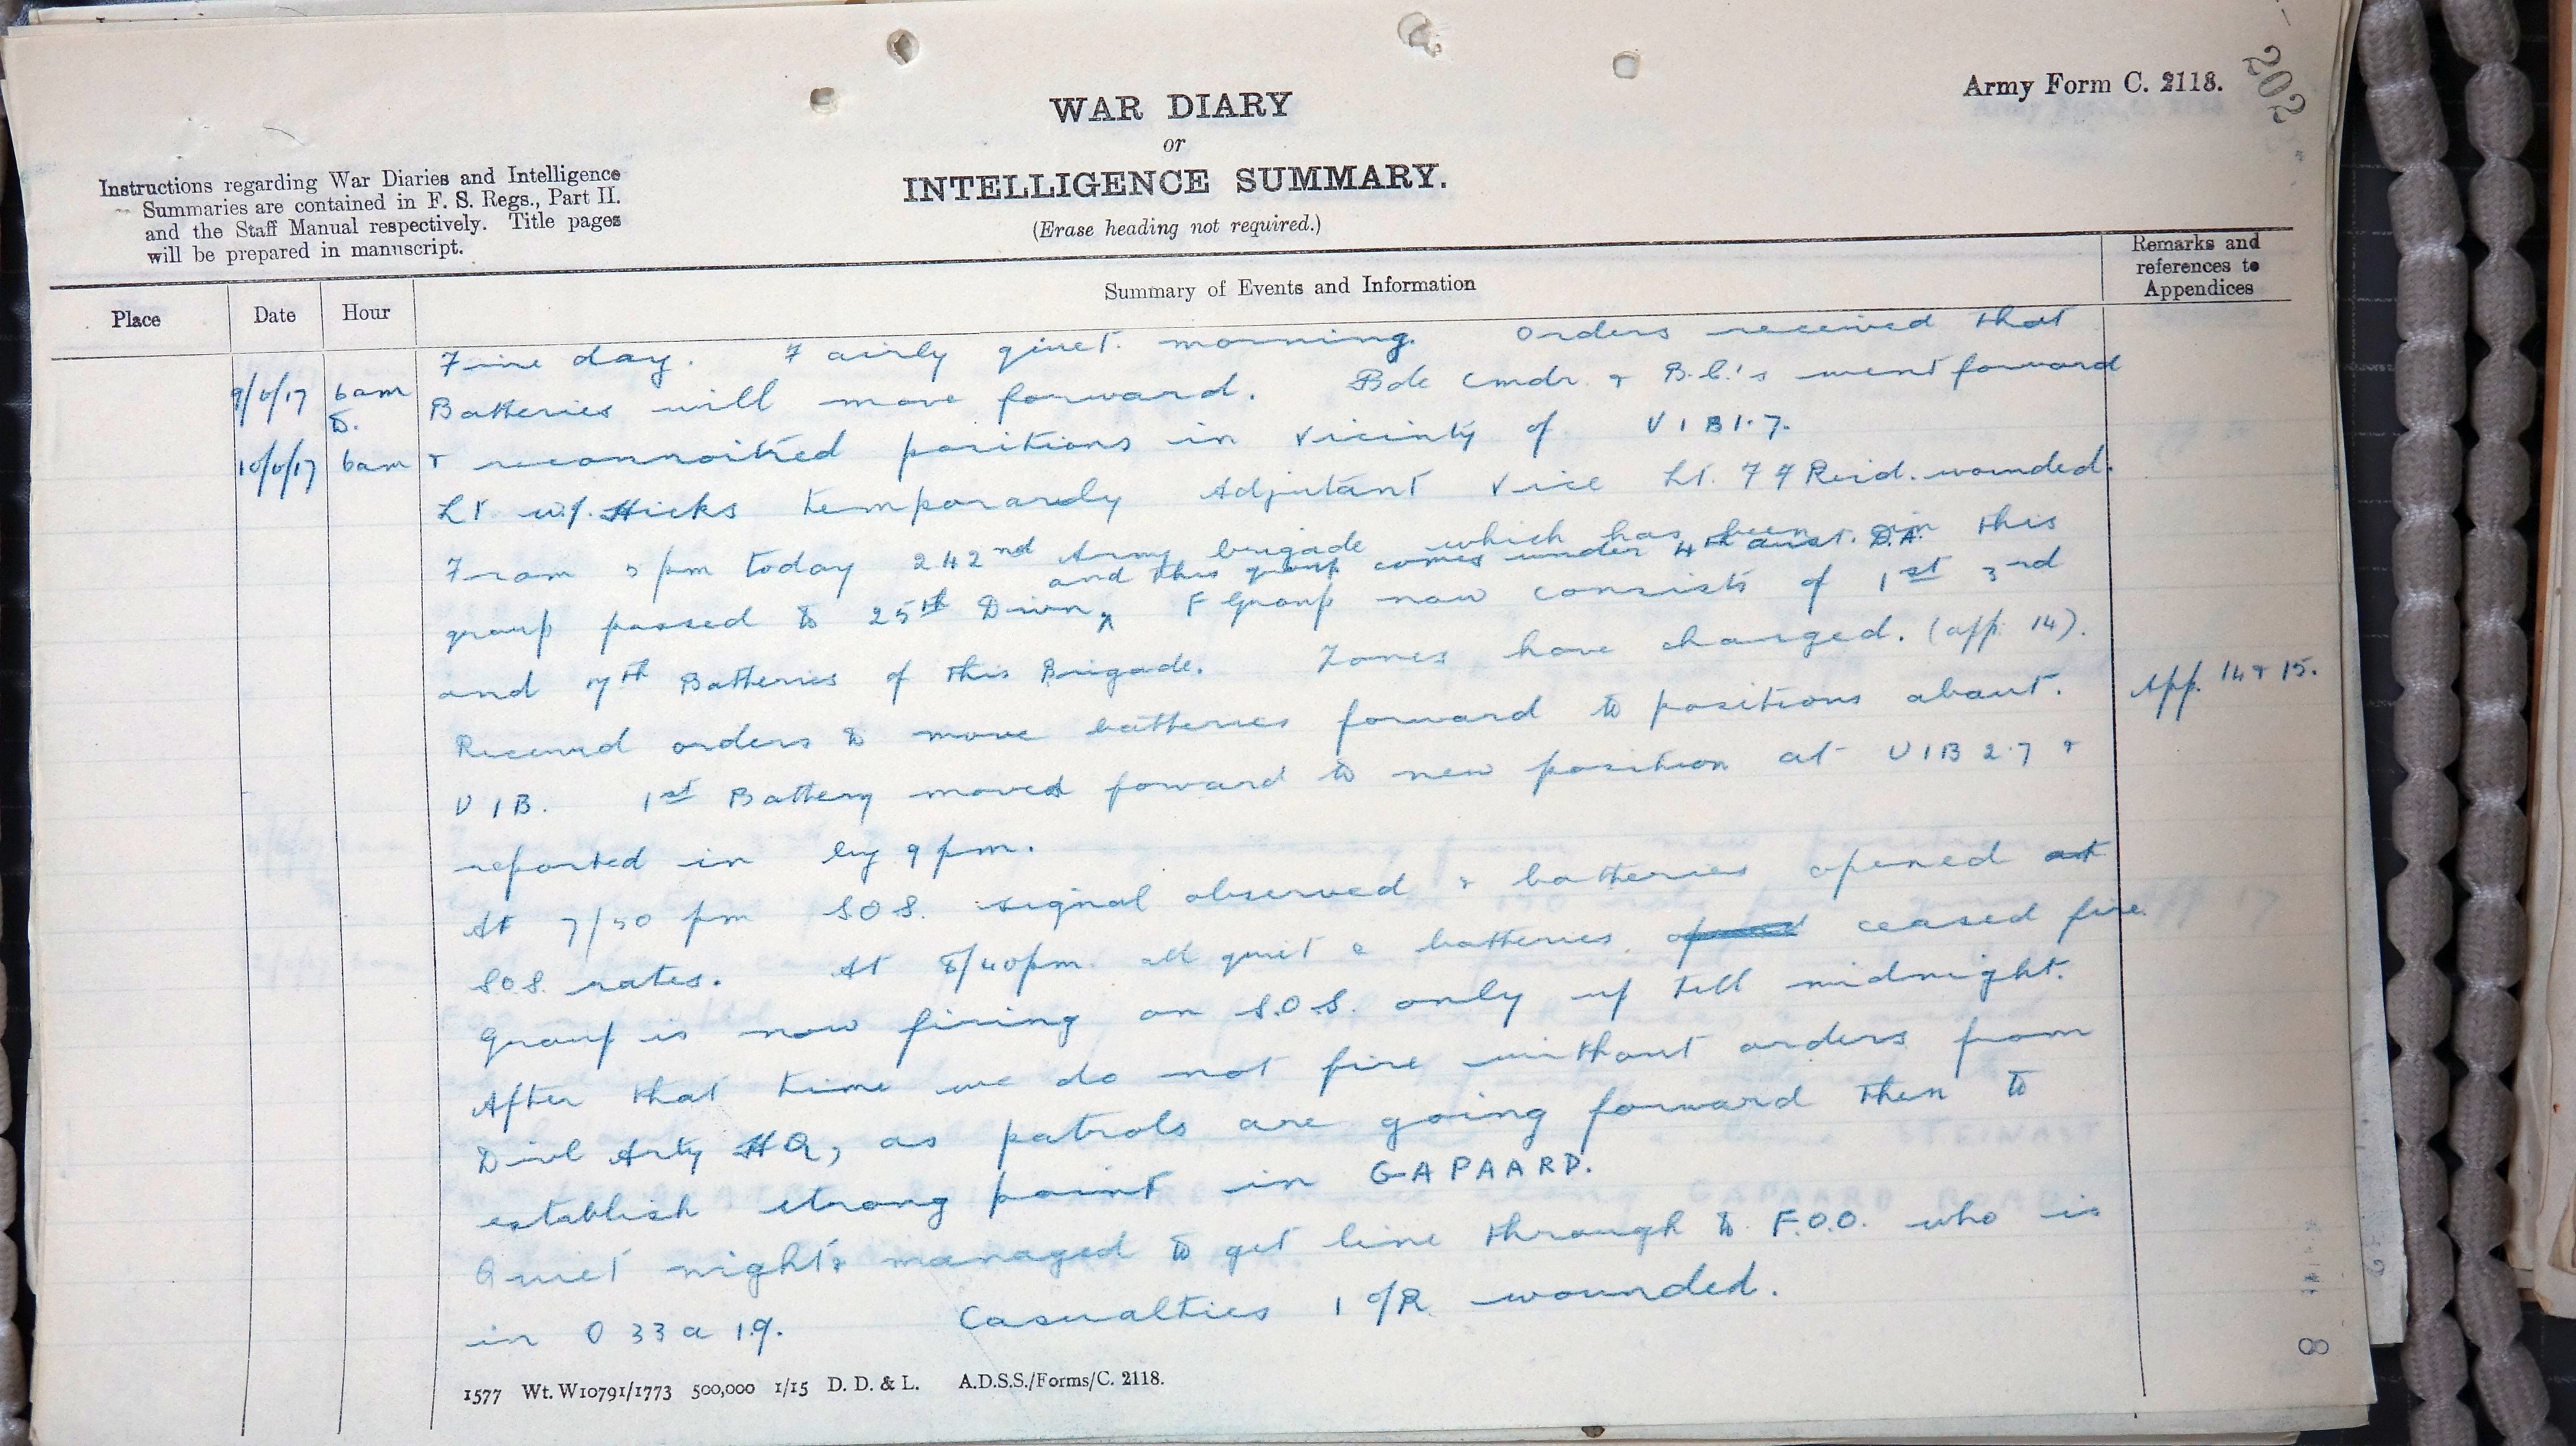 Army Form C. 2118.
202
WAR DIARY
or
INTELLIGENCE SUMMARY.
(Erase heading not required.)
Instructions regarding War Diaries and Intelligence
Summaries are contained in F. S. Regs., Part II.
and the Staff Manual respectively. Title pages
will be prepared in manuscript.
Place
Date
Hour
Summary of Events and Information
Remarks and
references to
Appendices
Fine day. Fairly quiet morning. Orders received that
9/6/17 6am Batteries will move forward. Bde Cmdr. & B.C.'s went forward
to.
10/6/17 6am & reconnoitred positions in vicinity of U1B1.7.
Lt. W.J. Hicks temporarely Adjutant vice Lt. Reid. wounded.
From 5 pm today 242nd Army brigade which has been in this
and this group comes under 4th Aust. D.A.
group passed to 25th Divn. F Group now consists of 1st 3rd
and 7th Batteries of this Brigade. Zones have changed. (app. 14).
Received orders to move batteries forward to positions about. App. 14 & 15.
U1B. 1st Battery moved forward to new position at U1B 2.7 &
reported in by 9 pm.
At 7/50 pm SOS. signal observed & batteries opened at
SOS. rates. At 8/40pm. all quiet & batteries opened ceased fire.
Group is now firing on S.O.S. only up till midnight.
After that time we do not fire without orders from
Divl Arty HQ, as patrols are going forward then to
establish strong point in GAPAARD.
Quiet night & managed to get line through to F.O.O. who is
in O 33 a 1.9. Casualties 1 O/R wounded.
1577 Wt. W10791/1773 500,000 1/15 D. D. & L. A.D.S.S./Forms/C. 2118.
8